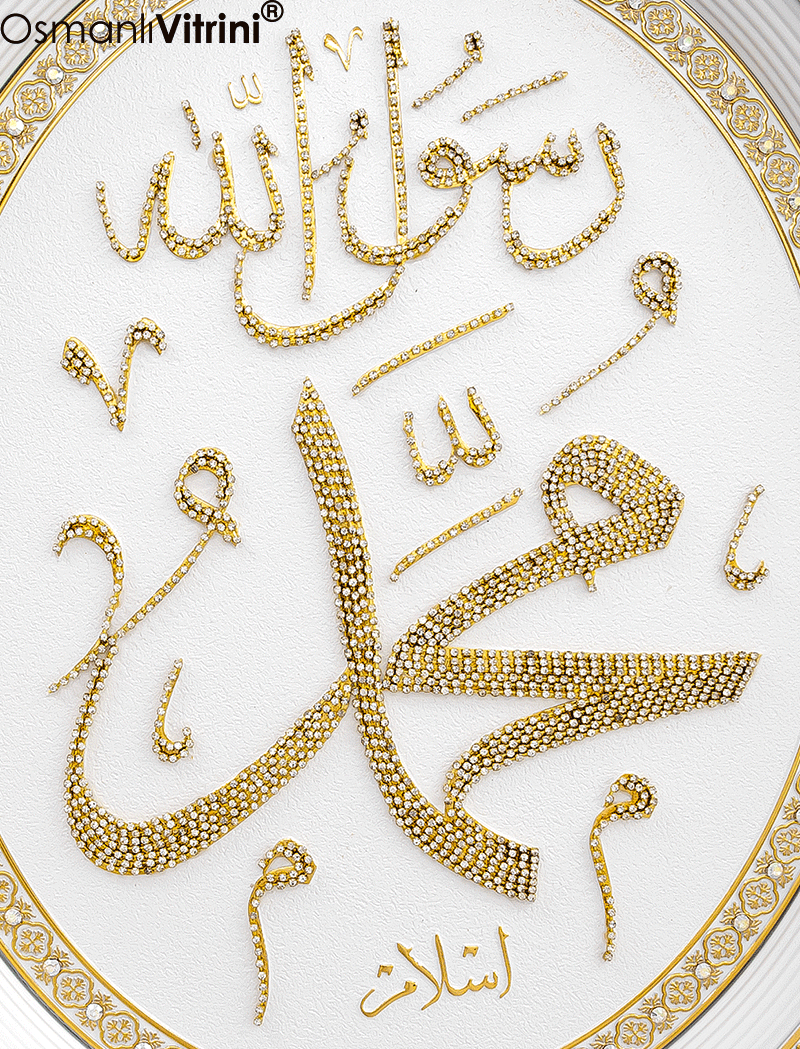 OsmanlıVitrini®
رسول الله
محمد
اسلام